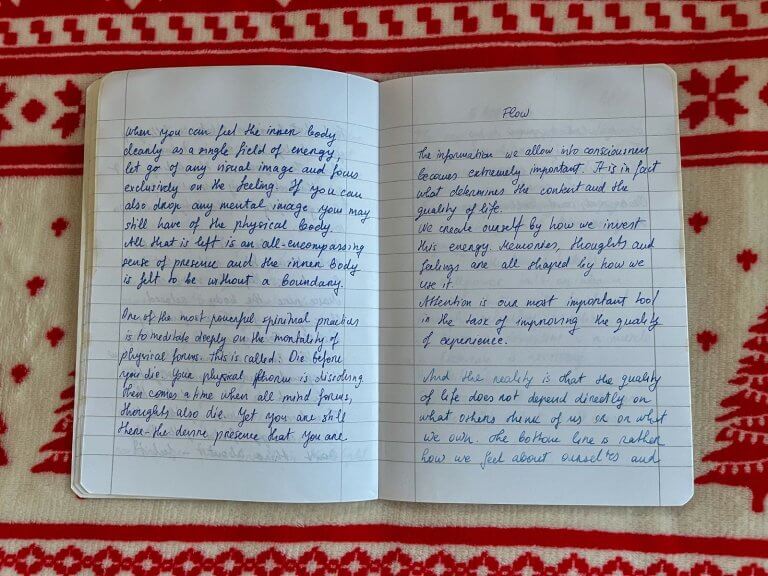 When you can feel the inner body
clearly as a single field of energy,
let go of any visual image and focus
exclusively on the feeling. If you can
also drop any mental image you may
still have of the physical body.
All that is left is an all-encompassing
sense of presence and the inner body
is felt to be without a boundary.
One of the most powerful spiritual practices
is to meditate deeply on the mortality of
physical forms. This is called: Die before
you die. Your physical is disolving
then comes a time when all mind forms,
thoughts also die. Yet you are still
there - the devine presence that you are
Flow
The information we allow into consciousness
becomes extremely important. It is in fact
what determines the content and the
quality of life.
We create ourself by how we invest
this energy. Memories, thoughts and
feelings are all shaped by how we
use it.
Attention is our most important tool
in the task of improving the quality
of experience.
And the reality is that the quality
of life does not depend directly on
what others think of us or on what
we own. The bottom line is rather
how we feel about ourselves and